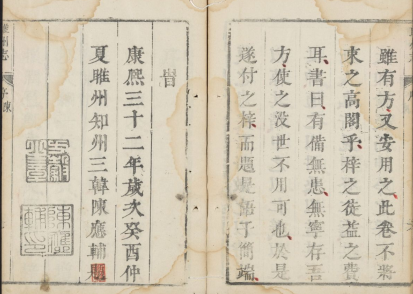 雖有方又安用之此卷不將
東之高閣乎梓之徒益之費
耳書曰有備無患無寧存吾
方使之没世不用可也於是
遂付之梓而題是語于簡端
旹
康熙三十二年歲次癸酉仲
夏雎州知州三韓陳應輔